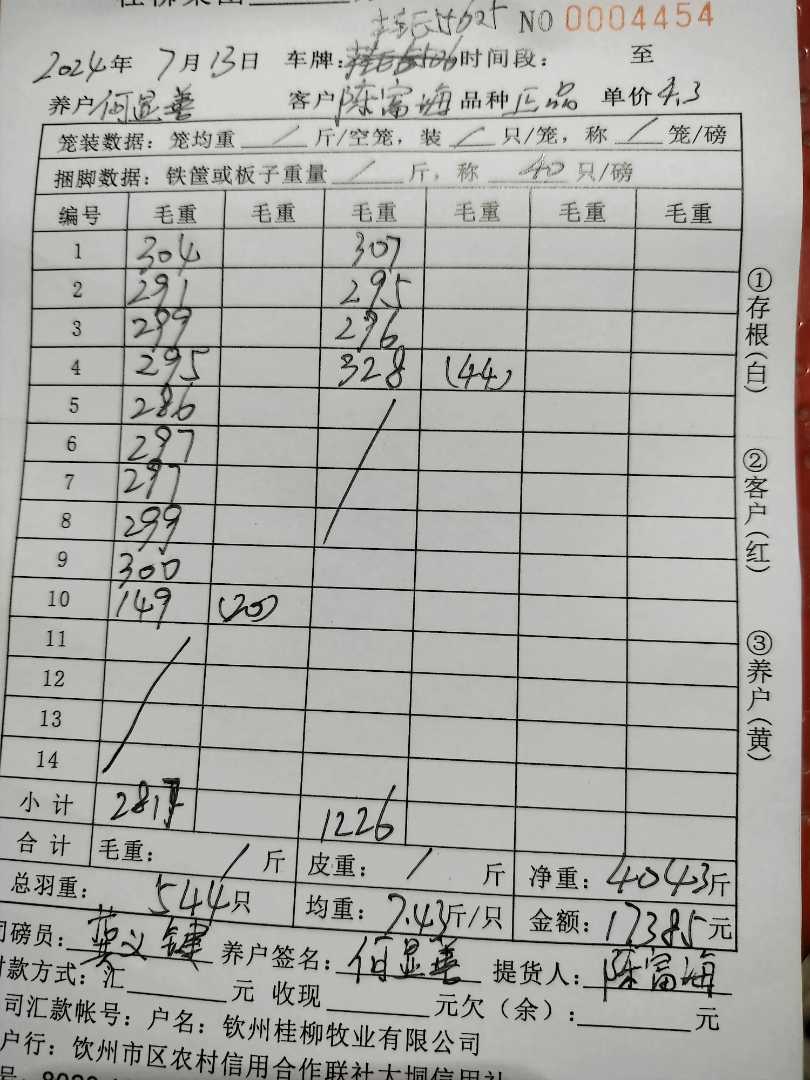 NO 0004454
2024年 7月13日 车牌: 时间段: 至
养户 何显善 客户 陈富海 品种 正品 单价 4.3
笼装数据: 笼均重 / 斤/空笼, 装 / 只/笼, 称 / 笼/磅
捆脚数据: 铁筐或板子重量 / 斤, 称 40 只/磅
编号 毛重 毛重 毛重 毛重 毛重 毛重
1 304 307
2 291 295
3 299 296
4 295 328 (44)
5 286
6 297
7 297
8 299
9 300
10 149 (20)
11
12
13
14
小计 2817 1226
合计 毛重: / 斤 皮重: / 斤 净重: 4043斤
总羽重: 544只 均重: 7.43斤/只 金额: 17385元
司磅员: 养户签名: 何显善 提货人: 陈富海
付款方式: 汇 元 收现 元欠(余): 元
司汇款帐号: 户名: 钦州桂柳牧业有限公司
户行: 钦州市区农村信用合作联社大垌信用社
①存根(白)
②客户(红)
③养户(黄)